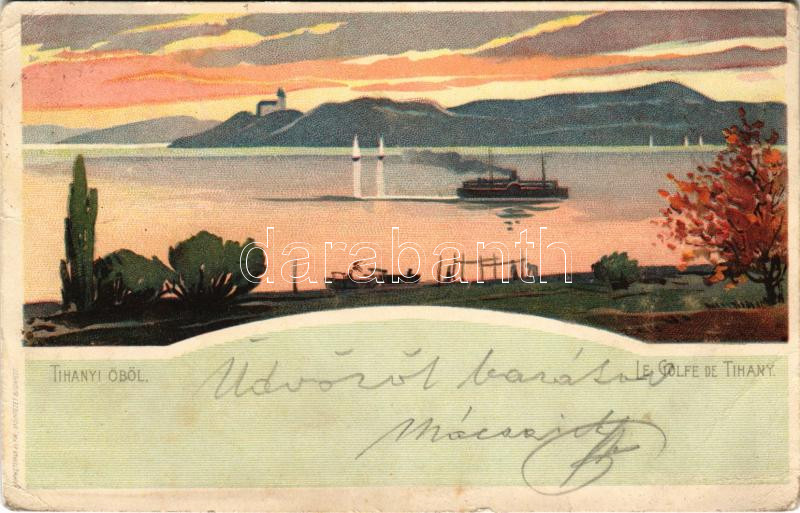 darabanth
TIHANYI ÖBÖL.
LE GOLFE DE TIHANY.
Üdvözöl barátod